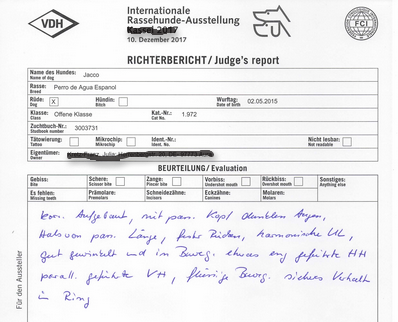 VDH
Internationale
Rassehunde-Ausstellung
Kassel 2017
10. Dezember 2017
FCI
RICHTERBERICHT / Judge's report
Name des Hundes: Jacco
Name of dog
Rasse: Perro de Agua Espanol
Breed
Rüde: X Hündin: Wurftag: 02.05.2015
Dog Bitch Date of birth
Klasse: Offene Klasse Kat.-Nr.: 1.972
Class Cat.-No.
Zuchtbuch-Nr.: 3003731
Studbook number
Tätowierung: Mikrochip: Ident.-Nr.: Nicht lesbar:
Tattoo Microchip Ident.-No. Not readable
Eigentümer:
Owner
BEURTEILUNG / Evaluation
Gebiss: Schere: Zange: Vorbiss: Rückbiss: Sonstiges:
Bite Scissor bite Pincer bite Undershot mouth Overshot mouth Anything else
Es fehlen: Prämolare: Schneidezähne: Eckzähne: Molaren:
Missing teeth Premolars Incisors Canines Molars
korr. Aufgebaut, mit pass. Kopf dunklen Augen,
Hals von pass. Länge, fester Rücken, harmonische UL,
gut gewinkelt und in Beweg. etwas eng geführte HH
parall. geführte VH, flüssige Bewg. sicheres Verhalt
in Ring
Für den Aussteller